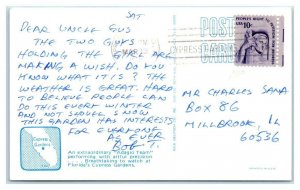 SAT
DEAR UNCLE GUS
THE TWO GUYS
HOLDING THE GIRL ARE
MAKING A WISH. DO YOU
KNOW WHAT IT IS? THE
WEATHER IS GREAT. HARD
TO BELIEVE PEOPLE CAN
DO THIS EVERY WINTER
AND NOT SHOVEL SNOW
THIS GARDEN HAS INTERESTS
FOR EVERYONE
AS EVER
BOB T.
Cypress
Gardens
An extraordinary "Adagio Team"
performing with artful precision.
Breathtaking to watch at
Florida's Cypress Gardens.
POST
CARD
US
10c
MR CHARLES SANA
BOX 86
MILLBROOK, IL
60536